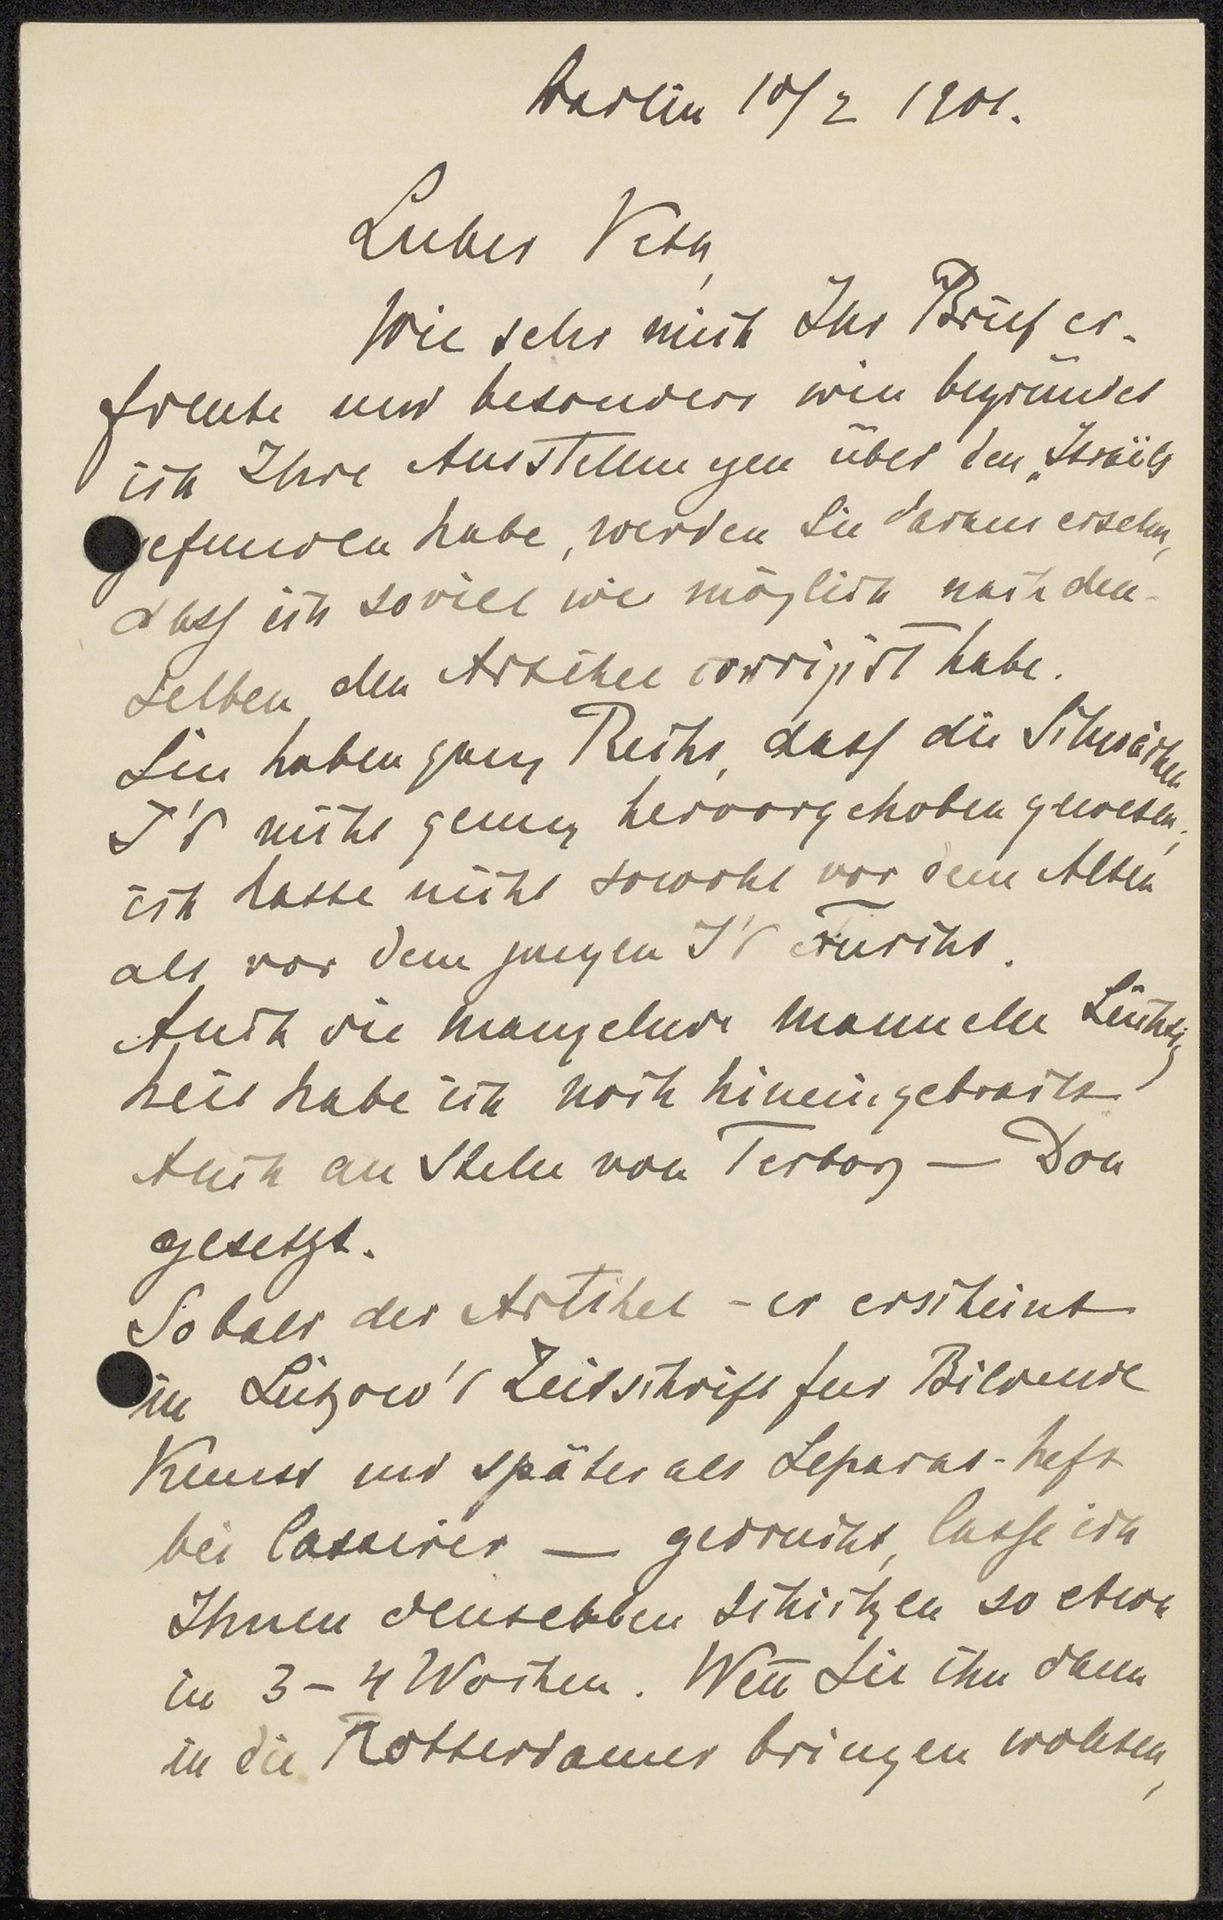 Berlin 10/2 1901.
Lieber Veth,
Wie sehr mich Ihr Brief er-
freute und besonders wie begründet
ich Ihre Ausstellungen über den „Israëls
gefunden habe, werden Sie daraus ersehn,
dass ich soviel wie möglich nach den-
selben den Artikel corrigirt habe.
Sie haben ganz Recht, dass die Schwächen
I's nicht genug hervorgehoben gewesen,
ich hatte nicht sowohl vor dem Alten
als vor dem jungen I's Furcht.
Auch die mangelnde manuelle Leichtig
keit habe ich noch hineingebracht
Auch an Stelle von Terborg — Dou
gesetzt.
Sobald der Artikel – er erscheint
in Lützow's Zeitschrift für Bildende
Kunst und später als Separat-heft
bei Cassirer — gedruckt, lasse ich
Ihnen denselben schicken so etwa
in 3–4 Wochen. Wen̄ Sie ihn dann
in die Rotterdamer bringen wollten,